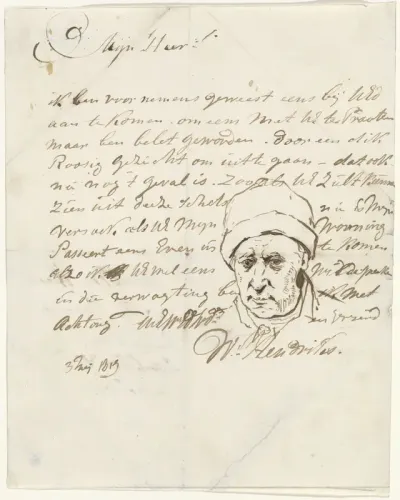 Mijn Heer
ik ben voornemens geweest eens bij UEd
aan te komen. om eens met UE te Praaten
maar ben belet geworden. door een dik
Roosig gezicht om uit te gaan - dat ook
nu nog 't geval is. Zoo als UE zult kunnen
Zien uit deeze schets nu is mijn
versoek als UE mijn Wooning
Passeert eens Even in te komen
UE wel eens
in die verwagting ben ik met
Achting
W. Hendriks.
1819